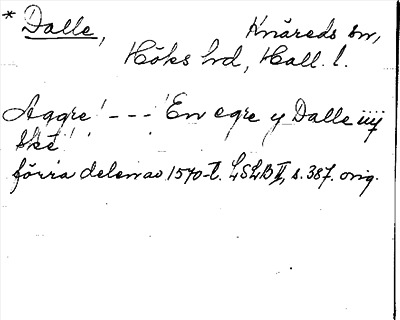 * Dalle, Knäreds sn,
Höks hd, Hall. l.
Aggre! --- ! En egre y Dalle iiij
Ske!
förra delen av 1570-t. LSLB II, s. 387. orig.